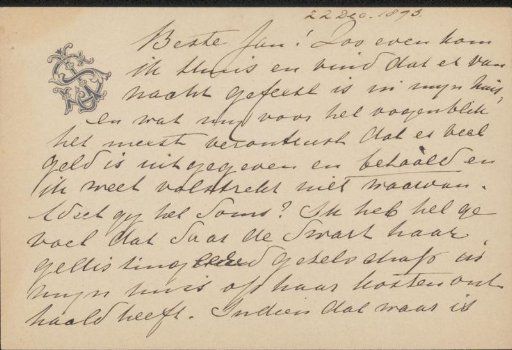 22 Dec. 1893
Beste Jan! Zoo even kom
ik thuis en vind dat er van
nacht gefeest is in mijn huis,
en wat mij voor het oogenblik
het meest verontrust dat er veel
geld is uitgegeven en betaald en
ik weet volstrekt niet waarvan.
Weet gij het soms? Ik heb het ge
voel dat Saar de Swart haar
gedistingeerd gezelschap in
mijn huis op haar kosten ont
haald heeft. Indien dat waar is